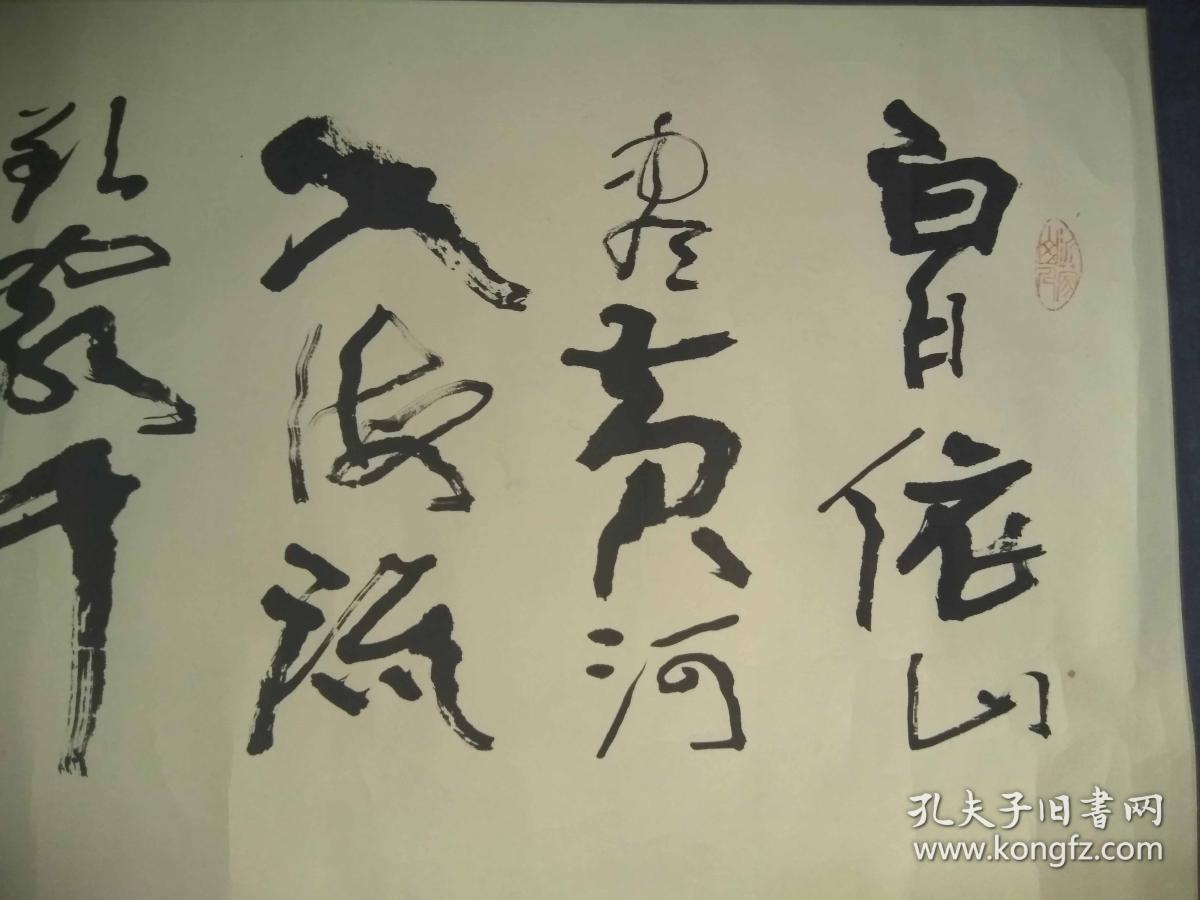 白日依山
盡黄河
入海流
欲窮千
孔夫子旧書网
www.kongfz.com